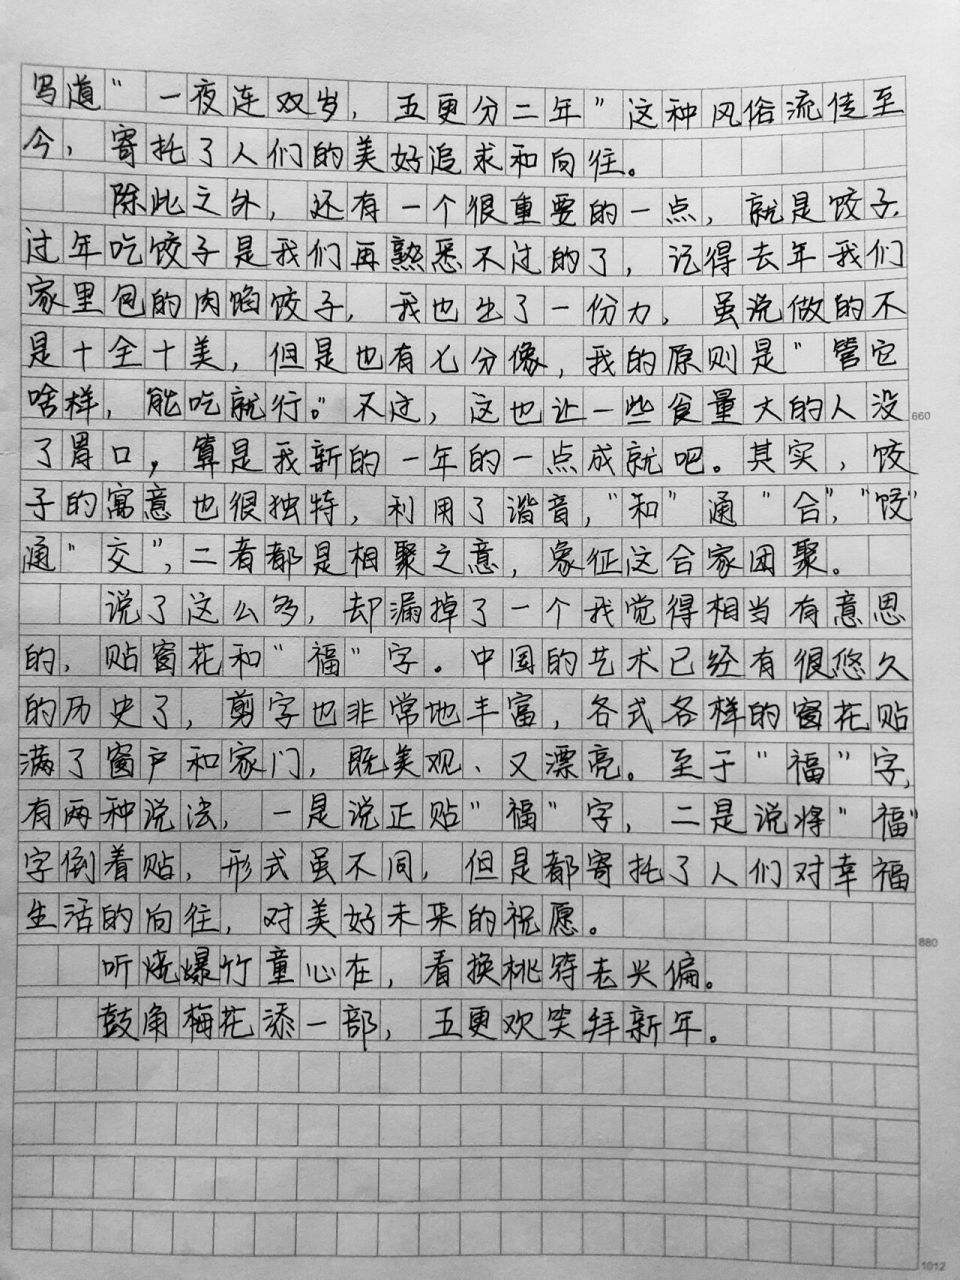 写道“一夜连双岁，五更分二年”这种风俗流传至
今，寄托了人们的美好追求和向往。
除此之外，还有一个很重要的一点，就是饺子.
过年吃饺子是我们再熟悉不过的了，记得去年我们
家里包的肉馅饺子，我也出了一份力，虽说做的不
是十全十美，但是也有七分像，我的原则是“管它
啥样，能吃就行。”不过，这也让一些食量大的人没
了胃口，算是我新的一年的一点成就吧。其实，饺
子的寓意也很独特，利用了谐音，“和”通“合”，“饺”
通“交”，二者都是相聚之意，象征这合家团聚。
说了这么多，却漏掉了一个我觉得相当有意思
的，贴窗花和“福”字。中国的艺术已经有很悠久
的历史了，剪字也非常地丰富，各式各样的窗花贴
满了窗户和家门，既美观、又漂亮。至于“福”字，
有两种说法，一是说正贴“福”字，二是说将“福”
字倒着贴，形式虽不同，但是都寄托了人们对幸福
生活的向往，对美好未来的祝愿。
听烧爆竹童心在，看换桃符老兴偏。
鼓角梅花添一部，五更欢笑拜新年。
660
880
1012